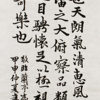 也天朗氣清惠風
宙之大俯察品類
目騁懷足以極視
可樂也